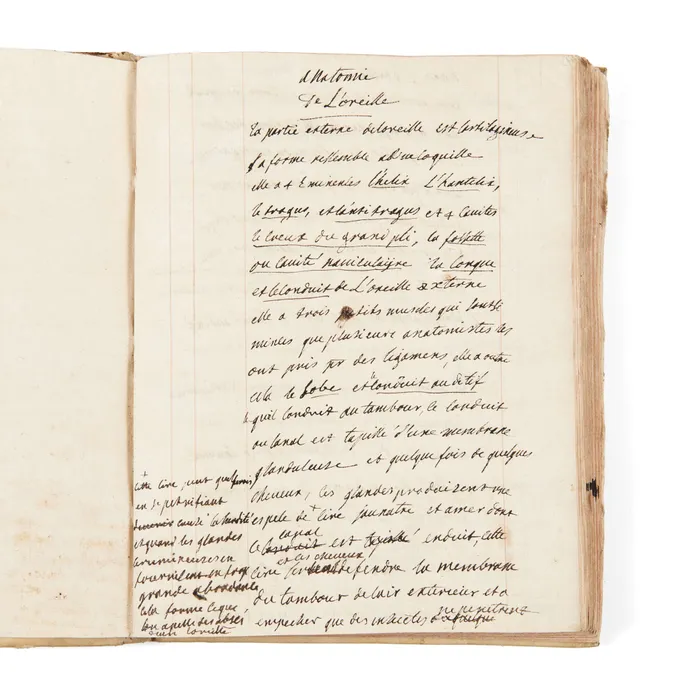 anatomie
de L'oreille
la partie externe deloreille est cartilagineuse
sa forme ressemble a une coquille
elle a 4 Eminences l'helix L'hantelix,
le tragus, et lanti tragus et 4 cavites
le creux du grand pli, la fossette
ou cavité naviculaire la conque
et le conduit de L'oreille externe
elle a trois petits muscles qui sont si
minces que plusieurs anatomistes les
ont pris pr des ligamens, elle a outre
cela le lobe et le conduit auditif
qu'il conduit au tambour, le conduit
ou canal est tapissé d'une membrane
glanduleuse et quelque fois de quelques
cheveux, les glandes produisent une
espece de + cire jaunatre et amer dont
ce canal est enduit, cette
cire et ces cheveux defendre la membrane
du tambour de lair exterieur et a
empecher que des insectes ny penetrent
+
cette cire peut quelquefois
en se petrifiant
causé la surdité
et quand les glandes
cerumineuses en
fournissent en trop
grande abondance
cela forme ce que
lon apelle des abcés
dans loreille